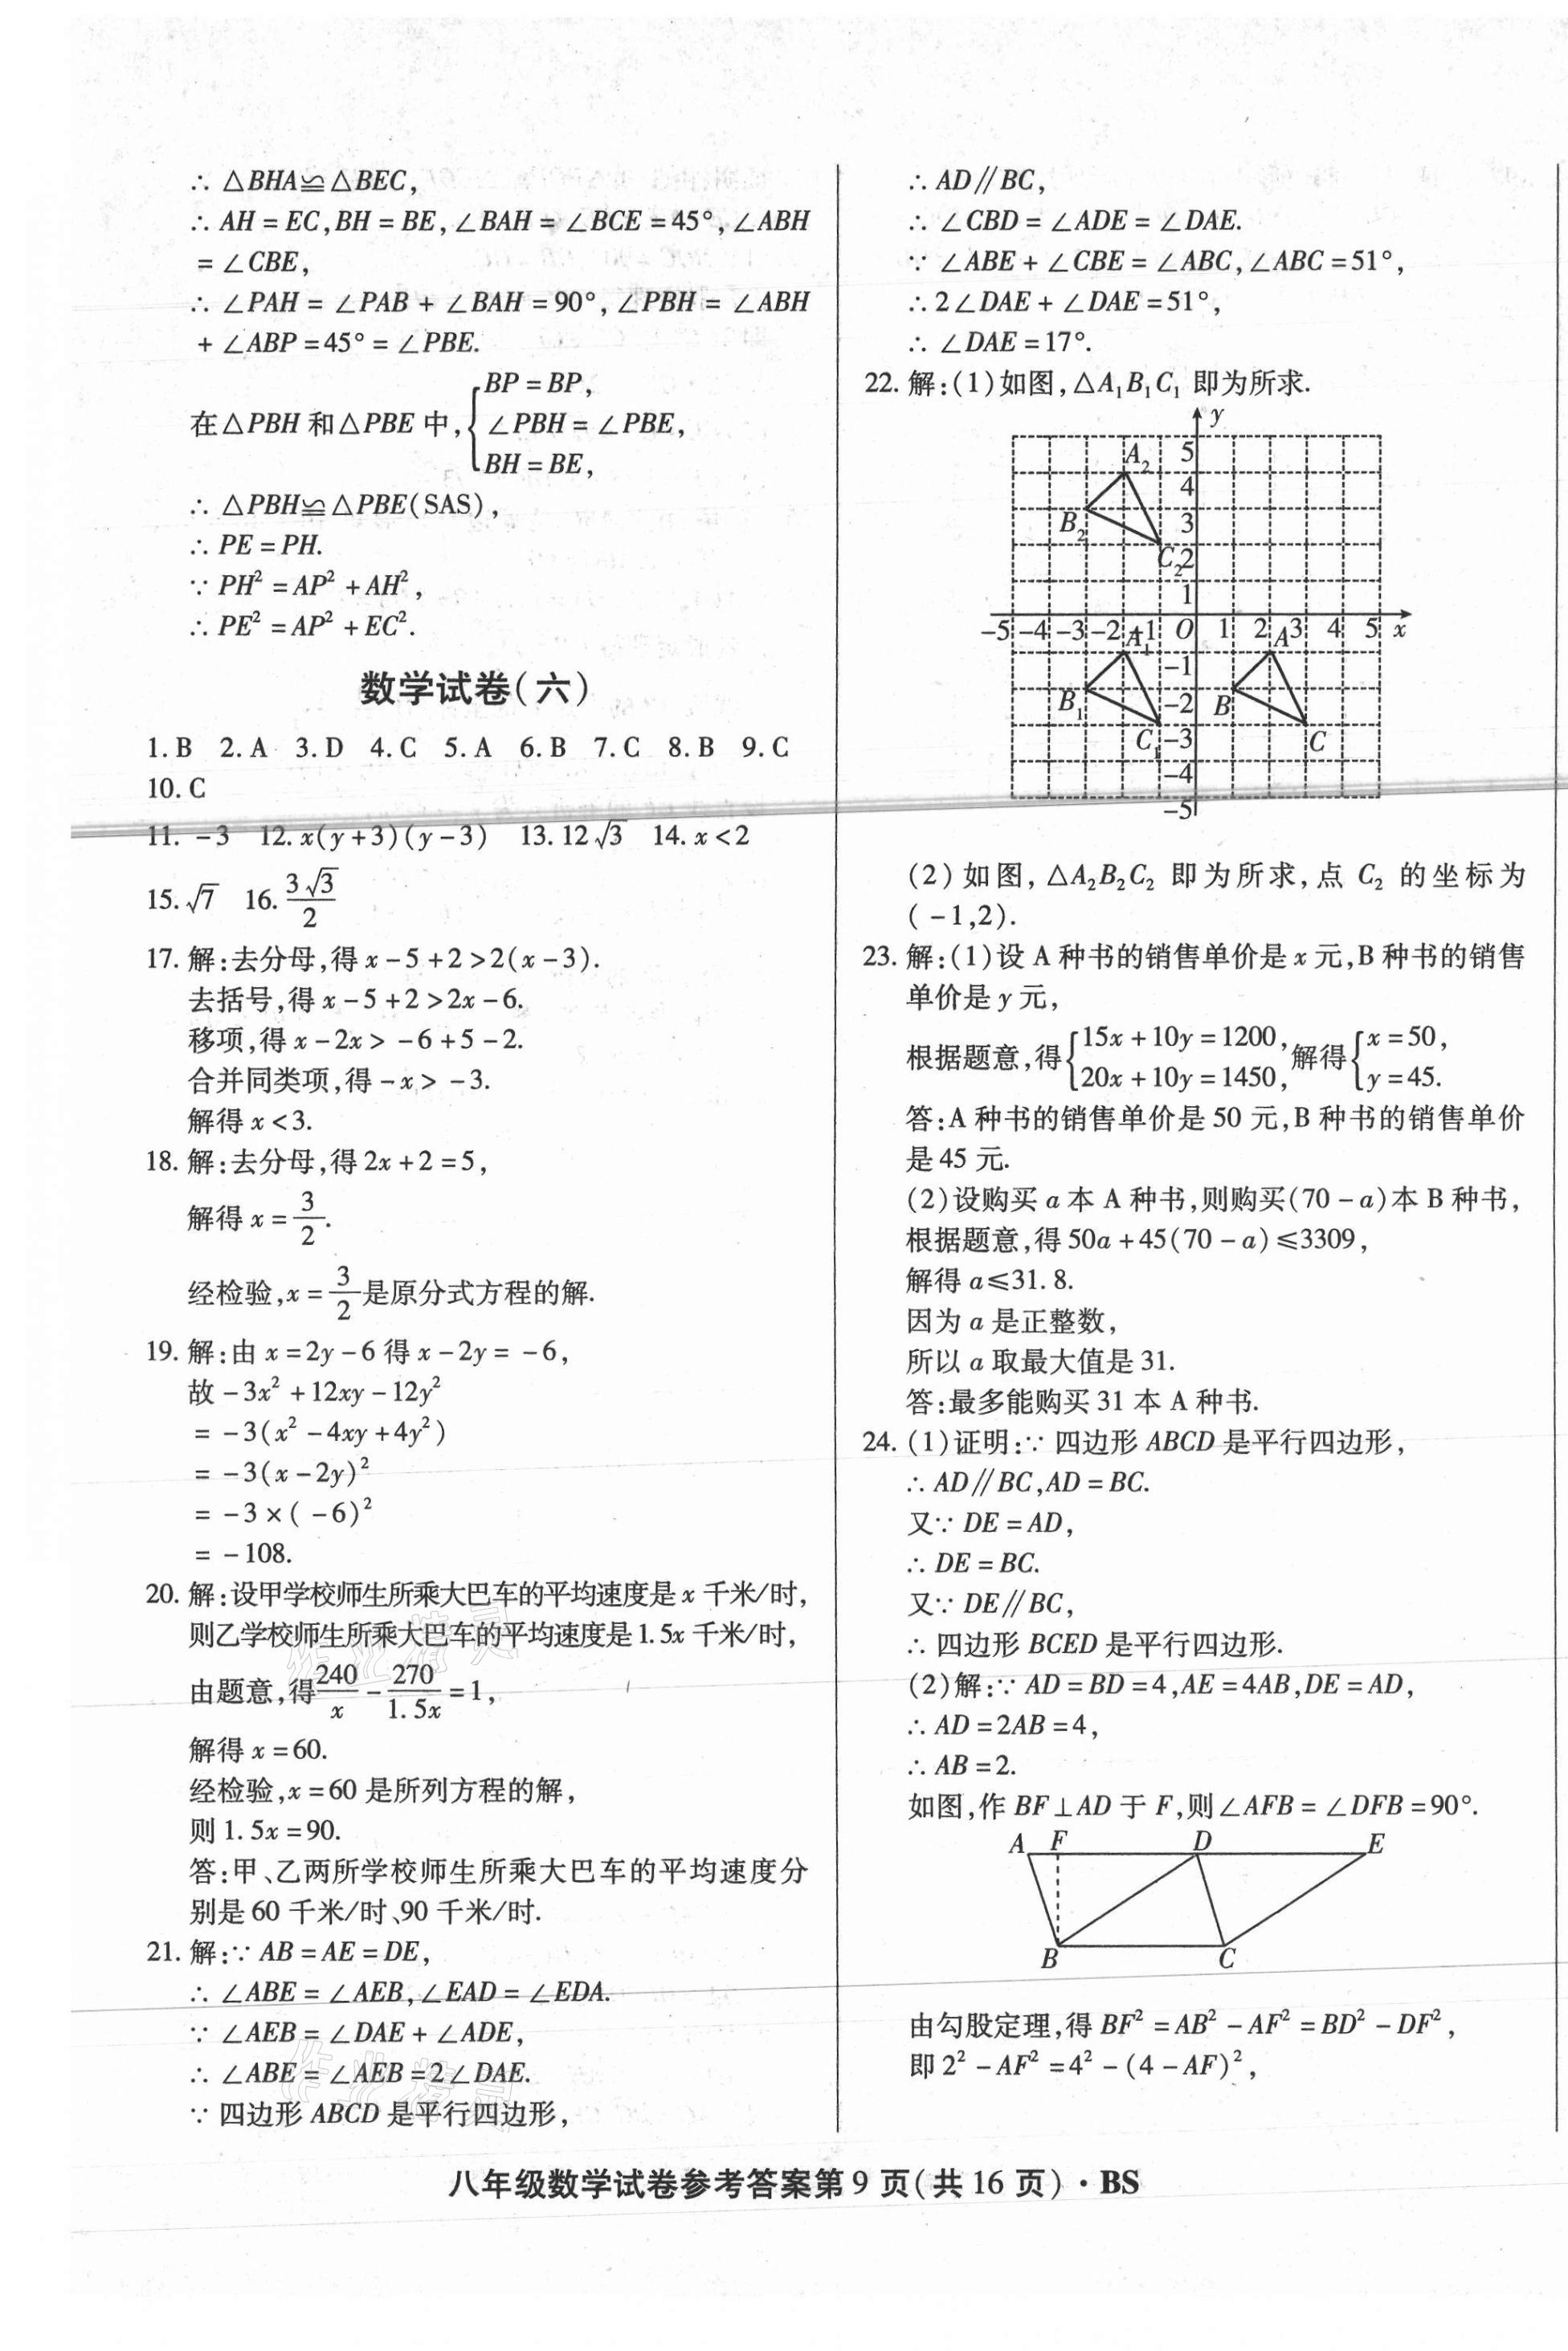 ∴ △BHA≌△BEC,
∴ AH = EC, BH = BE, ∠BAH = ∠BCE = 45°, ∠ABH
= ∠CBE,
∴ ∠PAH = ∠PAB + ∠BAH = 90°, ∠PBH = ∠ABH
+ ∠ABP = 45° = ∠PBE.
BP = BP,
在△PBH 和△PBE 中, { ∠PBH = ∠PBE,
BH = BE,
∴ △PBH≌△PBE(SAS),
∴ PE = PH.
∵ PH² = AP² + AH²,
∴ PE² = AP² + EC².
数学试卷(六)
1. B 2. A 3. D 4. C 5. A 6. B 7. C 8. B 9. C
10. C
11. -3 12. x(y+3)(y-3) 13. 12√3 14. x<2
15. √7 16. 3√3/2
17. 解:去分母,得 x-5+2>2(x-3).
去括号,得 x-5+2>2x-6.
移项,得 x-2x> -6+5-2.
合并同类项,得 -x> -3.
解得 x<3.
18. 解:去分母,得 2x+2=5,
解得 x = 3/2.
经检验, x = 3/2 是原分式方程的解.
19. 解:由 x=2y-6 得 x-2y= -6,
故 -3x²+12xy-12y²
= -3(x²-4xy+4y²)
= -3(x-2y)²
= -3×(-6)²
= -108.
20. 解:设甲学校师生所乘大巴车的平均速度是 x 千米/时,
则乙学校师生所乘大巴车的平均速度是 1.5x 千米/时,
由题意,得 240/x - 270/1.5x = 1,
解得 x=60.
经检验, x=60 是所列方程的解,
则 1.5x=90.
答:甲、乙两所学校师生所乘大巴车的平均速度分
别是 60 千米/时、90 千米/时.
21. 解:∵ AB = AE = DE,
∴ ∠ABE = ∠AEB, ∠EAD = ∠EDA.
∵ ∠AEB = ∠DAE + ∠ADE,
∴ ∠ABE = ∠AEB = 2∠DAE.
∵ 四边形 ABCD 是平行四边形,
∴ AD∥BC,
∴ ∠CBD = ∠ADE = ∠DAE.
∵ ∠ABE + ∠CBE = ∠ABC, ∠ABC = 51°,
∴ 2∠DAE + ∠DAE = 51°,
∴ ∠DAE = 17°.
22. 解:(1)如图,△A₁B₁C₁ 即为所求.
y
A₂ 5
4
B₂ 3
C₂ 2
1
-5 -4 -3 -2 -1 O 1 2 3 4 5 x
A₁ A
-1
B₁ -2 B
C₁ -3 C
-4
-5
(2)如图,△A₂B₂C₂ 即为所求,点 C₂ 的坐标为
(-1,2).
23. 解:(1)设 A 种书的销售单价是 x 元,B 种书的销售
单价是 y 元,
根据题意,得{15x+10y=1200, 20x+10y=1450, 解得{x=50, y=45.
答:A 种书的销售单价是 50 元,B 种书的销售单价
是 45 元.
(2)设购买 a 本 A 种书,则购买(70-a)本 B 种书,
根据题意,得 50a+45(70-a)≤3309,
解得 a≤31.8.
因为 a 是正整数,
所以 a 取最大值是 31.
答:最多能购买 31 本 A 种书.
24. (1)证明:∵ 四边形 ABCD 是平行四边形,
∴ AD∥BC, AD = BC.
又∵ DE = AD,
∴ DE = BC.
又∵ DE∥BC,
∴ 四边形 BCED 是平行四边形.
(2)解:∵ AD = BD = 4, AE = 4AB, DE = AD,
∴ AD = 2AB = 4,
∴ AB = 2.
如图,作 BF⊥AD 于 F,则∠AFB = ∠DFB = 90°.
A F D E
B C
由勾股定理,得 BF² = AB² - AF² = BD² - DF²,
即 2² - AF² = 4² - (4 - AF)²,
作业精灵
作业精灵
八年级数学试卷参考答案第 9 页(共 16 页)·BS